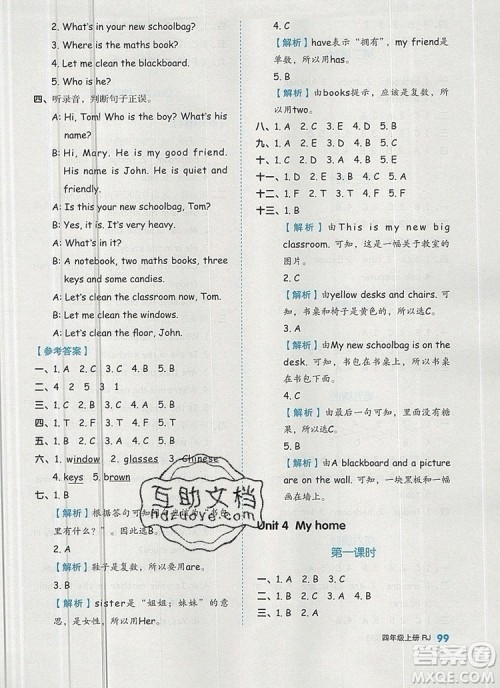 2. What's in your new schoolbag?
3. Where is the maths book?
4. Let me clean the blackboard.
5. Who is he?
四、听录音，判断句子正误。
A: Hi, Tom! Who is the boy? What's his
name?
B: Hi, Mary. He is my good friend.
His name is John. He is quiet and
friendly.
A: Is this your new schoolbag, Tom?
B: Yes, it is.
A: What's in it?
B: A notebook, two maths books, three
keys and some candies.
A: Let's clean the classroom now, Tom.
B: Let me clean the windows.
A: Let's clean the floor, John.
【参考答案】
一、1. A 2. B 3. C 4. A 5. B
二、4 2 5 3 1
三、1. C 2. B 3. A 4. C 5. B
四、1. T 2. F 3. T 4. F 5. F
六、1. window 2. glasses 3. Chinese
4. keys 5. brown
七、1. B
【解析】根据答句可知
里有什么？”。所以选B。
2. A
【解析】鞋子是复数，所以要用are。
3. B
【解析】sister是“姐姐；妹妹”的意
思，是女性，所以用her。
4. C
【解析】have表示“拥有”，my friend是
单数，所以用has。
5. B
【解析】由books提示，应该是复数，所
以用two。
八、1. A 2. C 3. E 4. D 5. B
十一、1. E 2. C 3. B 4. D 5. A
十二、1. B 2. C 3. B 4. A 5. C
十三、1. B
【解析】由This is my new big
classroom. 可知，这是一幅关于教室的
图片。
2. C
【解析】由yellow desks and chairs. 可
知，书桌和椅子是黄色的，所以选C。
3. A
【解析】由My new schoolbag is on the
desk. 可知，书包在书桌上，所以选A。
4. C
【解析】由最后一句可知，有一块黑板和
一幅图片在墙上，所以选C。
5. B
【解析】由A blackboard and a picture
are on the wall. 可知，一块黑板和一幅
图片在墙上，所以选B。
Unit 4 My home
第一课时
一、1. A 2. B 3. A 4. C 5. C
二、1. C 2. B 3. A
四年级上册 RJ 99
互助文档
Hdzuoye.com